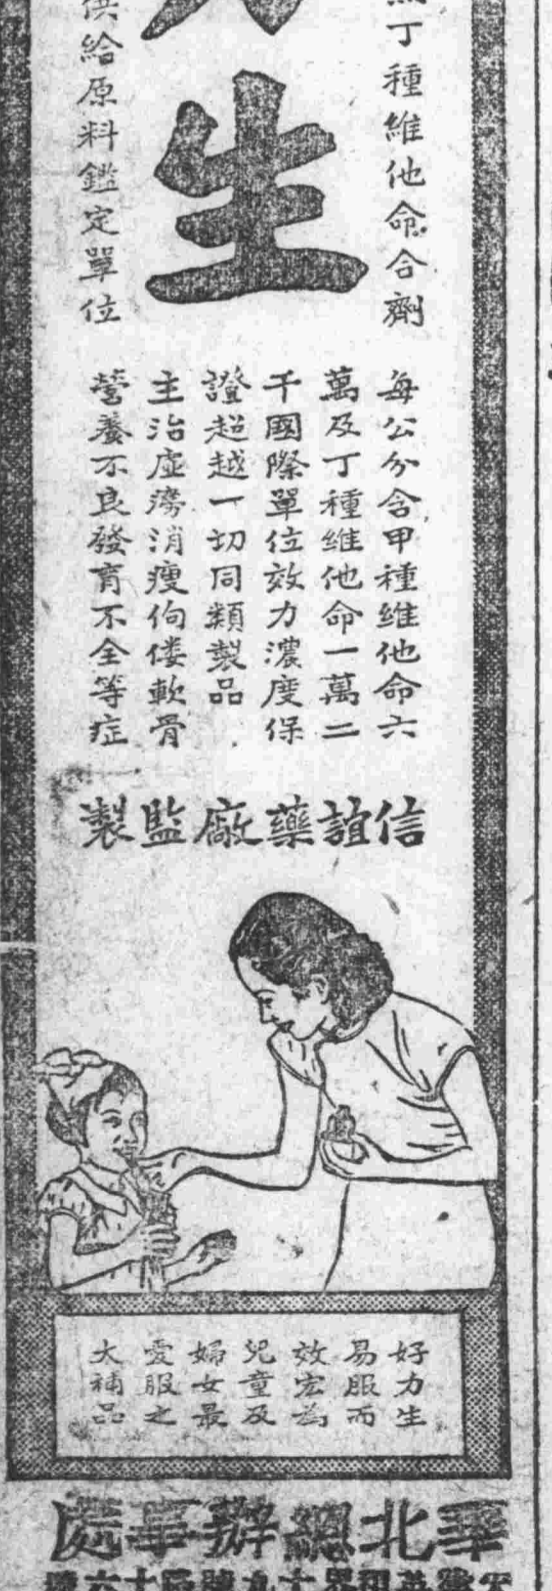 丁種維他命合劑
力生
供給原料鑑定單位
每公分含甲種維他命六
萬及丁種維他命一萬二
千國際單位效力濃度保
證超越一切同類製品
主治虛癆消瘦佝僂軟骨
營養不良發育不全等症
信誼藥廠監製
好力生
易服而
效宏為
兒童及
婦女最
愛服之
大補品
華北總辦事處